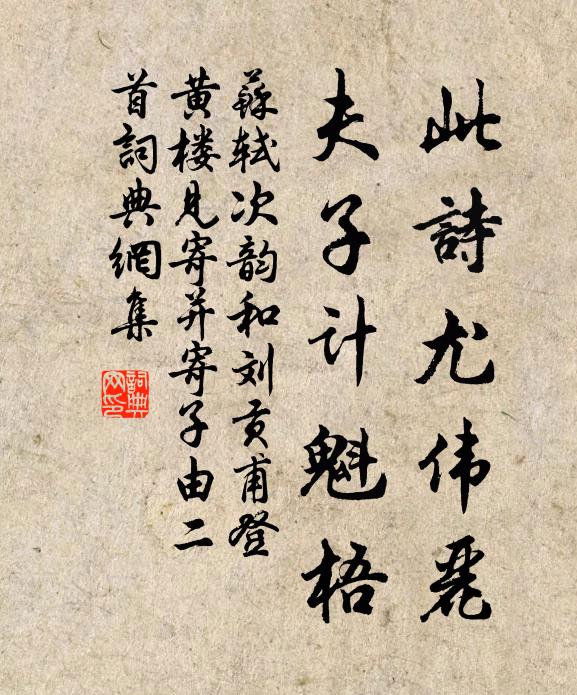 此詩尤伟麗
夫子计魁梧
蘇轼次韵和刘贡甫登
黄楼见寄并寄子由二
首詞典網集
詞典
网印